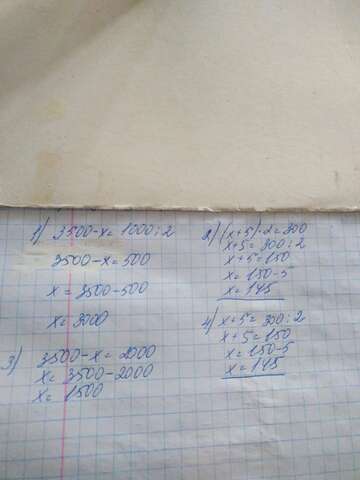 1) 3500-x=1000:2
3500-x=500
x=3500-500
x=3000
3) 3500-x=2000
x=3500-2000
x=1500
2) (x+5)·2=300
x+5=300:2
x+5=150
x=150-5
x=145
4) x+5=300:2
x+5=150
x=150-5
x=145